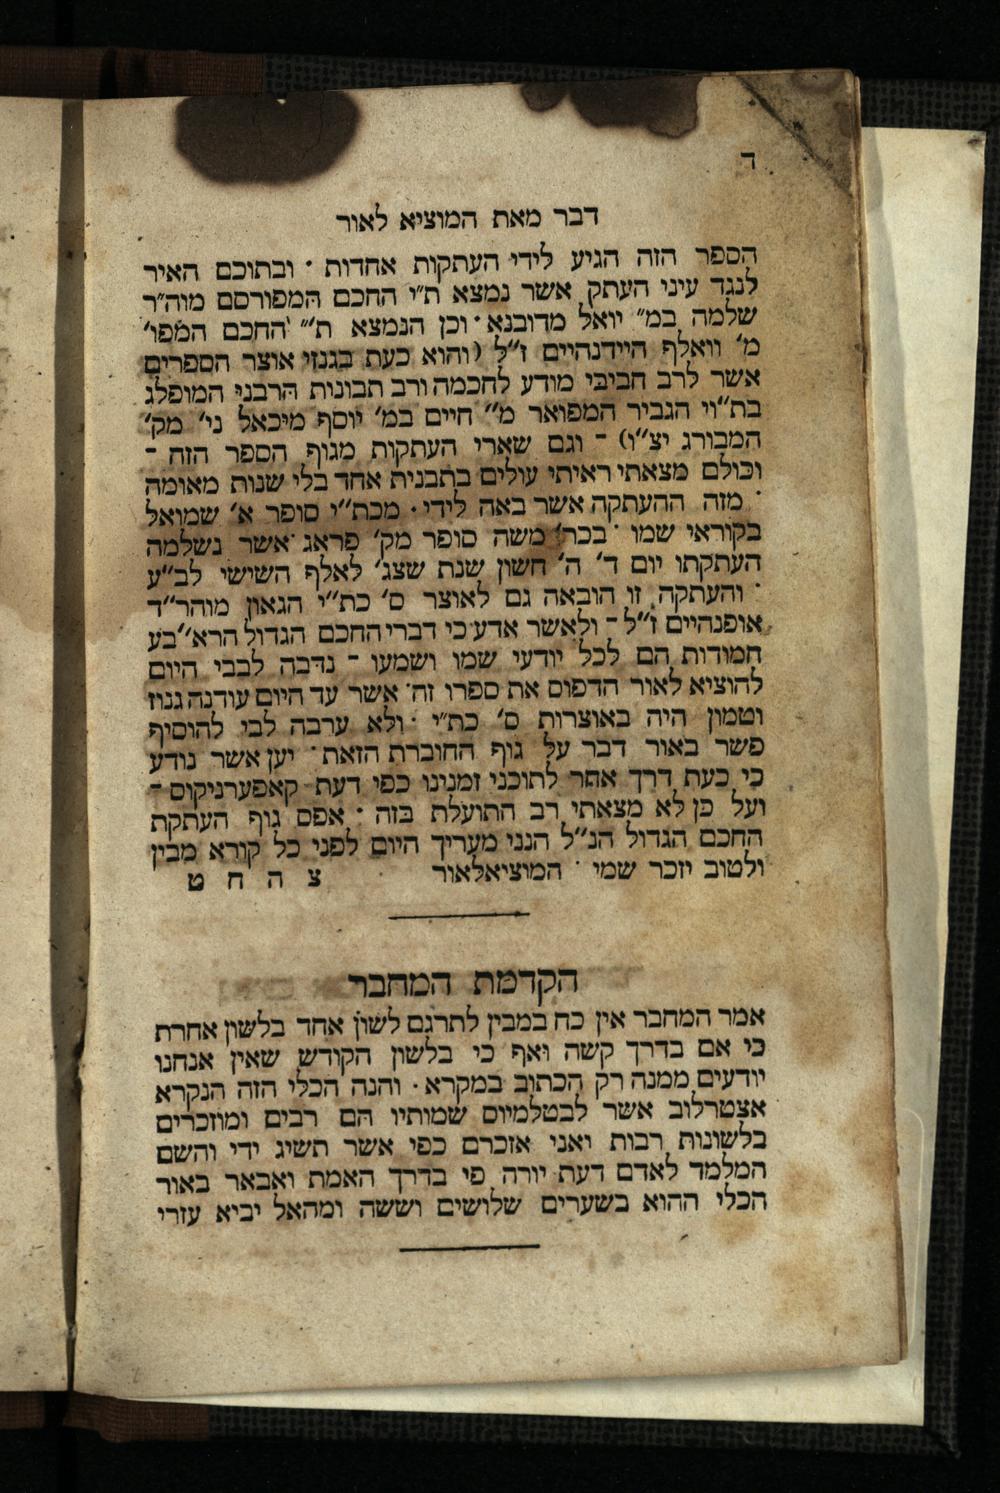 ד
דבר מאת המוציא לאור
הספר הזה הגיע לידי העתקות אחדות · ובתוכם האיר
לנגד עיני העתק אשר נמצא ת״י החכם המפורסם מוה״ר
שלמה במ״ יואל מדובנא · וכן הנמצא ת״ החכם המפו׳
מ׳ וואלף היידנהיים ז״ל (והוא כעת בגנזי אוצר הספרים
אשר לרב חביבי מודע לחכמה ורב תבונות הרבני המופלג
בת״וי הגביר המפואר מ״ חיים במ׳ יוסף מיכאל ני׳ מק׳
המבורג יצ״ו) – וגם שארי העתקות מגוף הספר הזה –
וכולם מצאתי ראיתי עולים בתבנית אחד בלי שנות מאומה
· מזה ההעתקה אשר באה לידי · מכת״י סופר א׳ שמואל
בקוראי שמו · בכר׳ משה סופר מק׳ פראג אשר נשלמה
העתקתו יום ד׳ ה׳ חשון שנת שצג׳ לאלף הששי לב״ע
· והעתקה זו הובאה גם לאוצר ס׳ כת״י הגאון מוהר״ד
אופנהיים ז״ל – ולאשר אדע כי דברי החכם הגדול הרא״בע
חמודות הם לכל יודעי שמו ושמעו – נדבה לבבי היום
להוציא לאור הדפוס את ספרו זה · אשר עד היום עודנה גנוז
וטמון היה באוצרות ס׳ כת״י · ולא ערבה לבי להוסיף
פשר באור דבר על גוף החוברת הזאת · יען אשר נודע
כי כעת דרך אחר לתוכני זמנינו כפי דעת קאפערניקוס –
ועל כן לא מצאתי רב התועלת בזה · אפס גוף העתקת
החכם הגדול הנ״ל הנני מעריך היום לפני כל קורא מבין
ולטוב יזכר שמי · המוציאלאור צ ה ח ט
הקדמת המחבר
אמר המחבר אין כח במבין לתרגם לשון אחד בלשון אחרת
כי אם בדרך קשה ואף כי בלשון הקודש שאין אנחנו
יודעים ממנה רק הכתוב במקרא · והנה הכלי הזה הנקרא
אצטרלוב אשר לבטלמיוס שמותיו הם רבים ומוזכרים
בלשונות רבות ואני אזכרם כפי אשר תשיג ידי והשם
המלמד לאדם דעת יורה פי בדרך האמת ואבאר באור
הכלי ההוא בשערים שלושים וששה ומהאל יביא עזרי